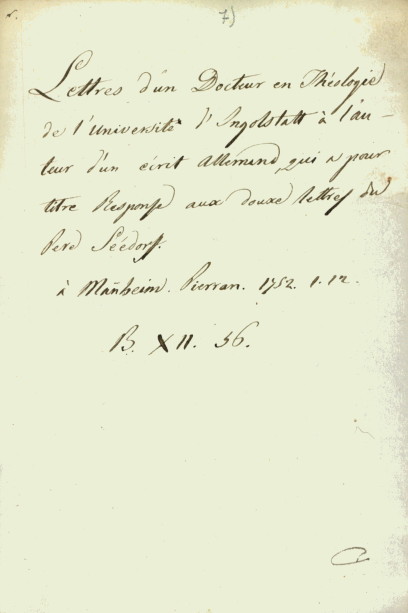 7)
Lettres d'un Docteur en Théologie
de l'université d'Ingolstatt à l'au-
teur d'un écrit allemand, qui a pour
titre Response aux douxe lettres du
Pere Séédorf.
à Manheim. Pierran. 1752. 1. 12.
B. XII. 56.